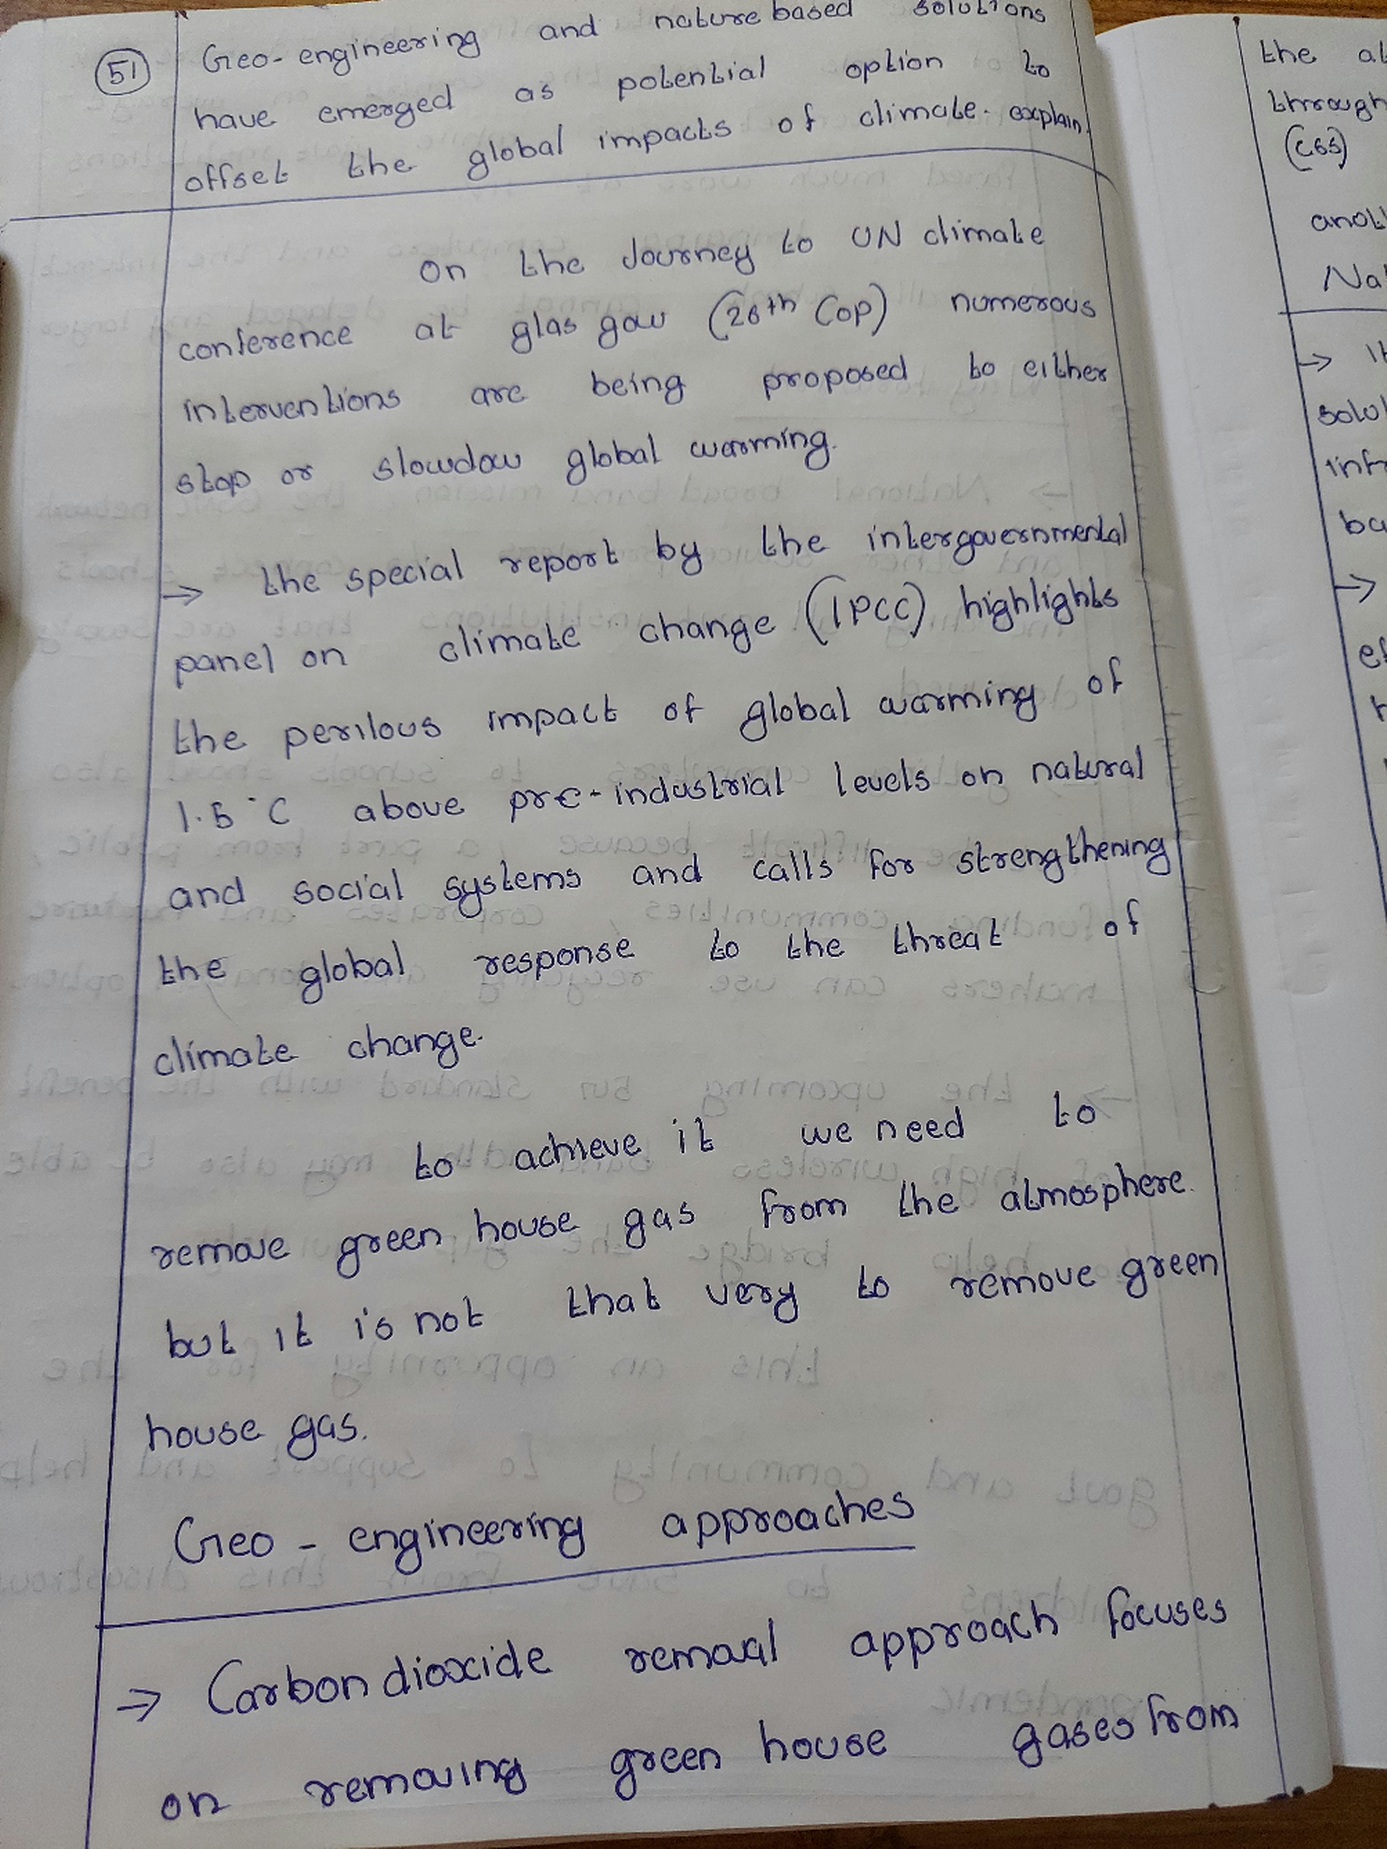 51
Geo-engineering and nature based solutions
have emerged as potential option to
offset the global impacts of climate. explain.
on the Journey to UN climate
conference at glas gow (26th Cop) numerous
interventions are being proposed to either
stop or slowdow global warming.
→ the special report by the intergovernmental
panel on climate change (IPCC) highlights
the perilous impact of global warming of
1.5°C above pre-industrial levels on natural
and social systems and calls for strengthening
the global response to the threat of
climate change.
to achieve it we need to
remove green house gas from the atmosphere.
but it is not that very to remove green
house gas.
Geo-engineering approaches
→ Carbondioxide remoal approach focuses
on removing green house gases from
the
through
→
→